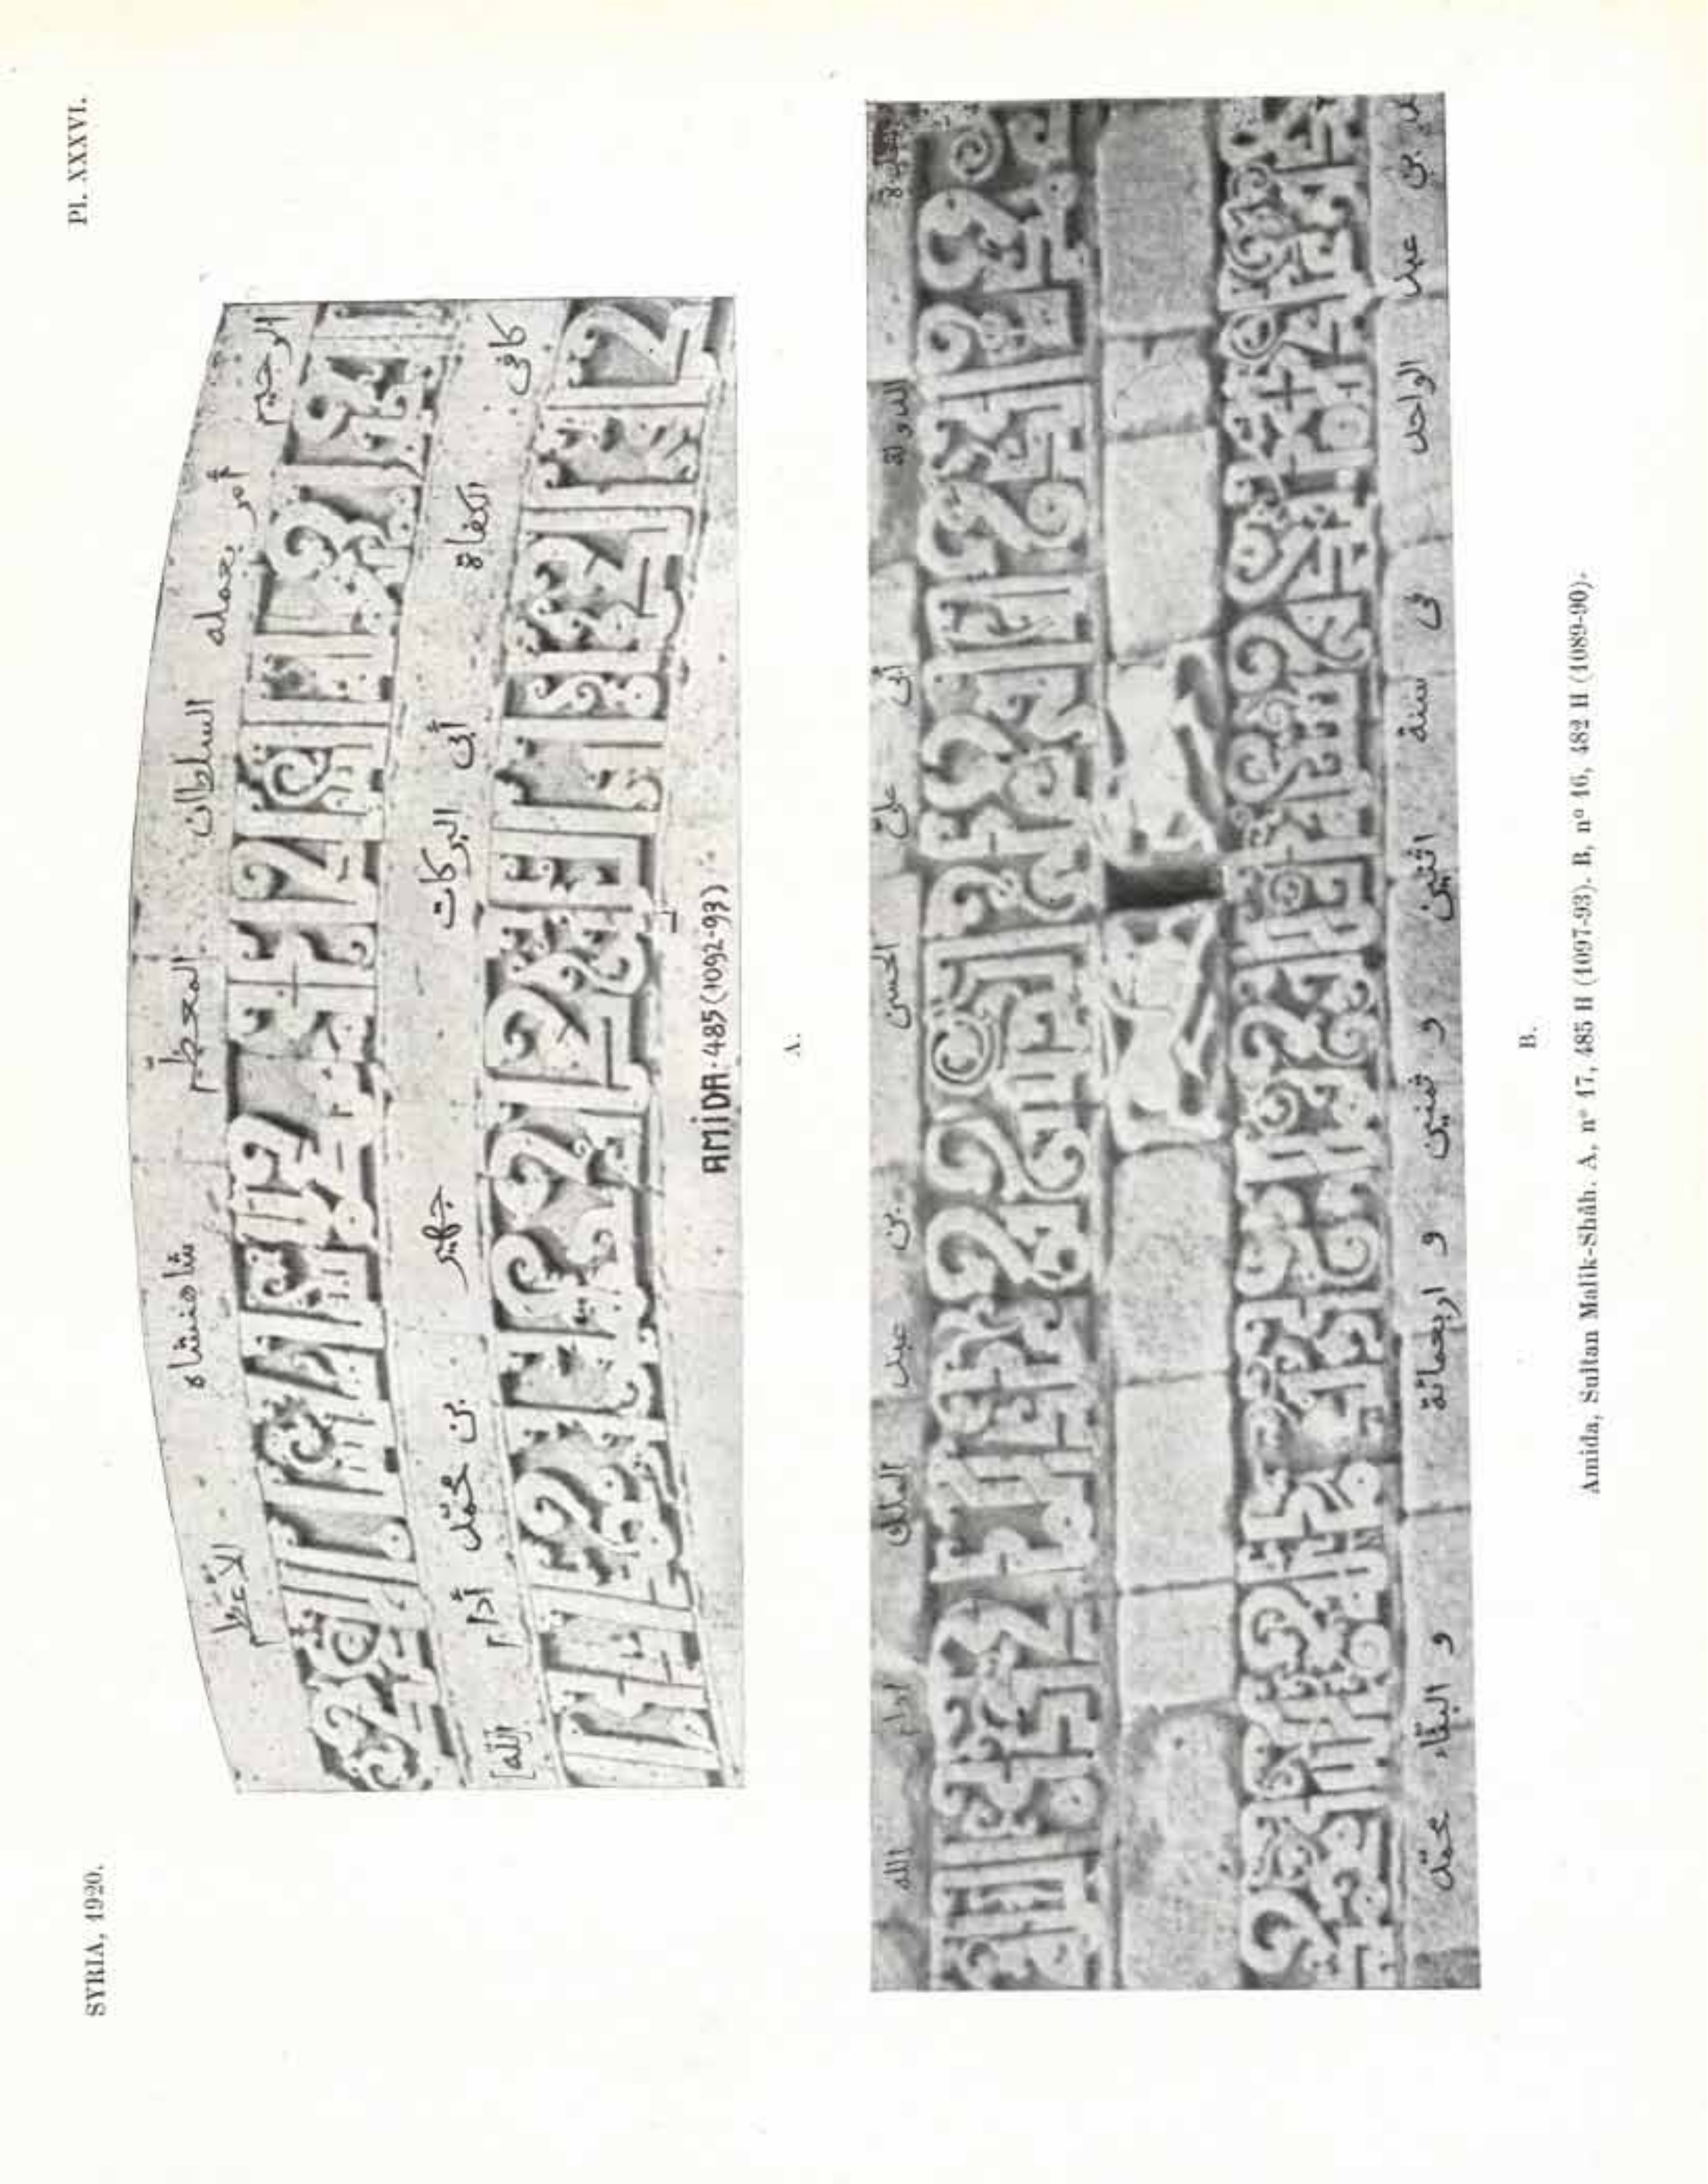 SYRIA, 1920. Pl. XXXVI.
الرحيم أمر بعمله السلطان المعظّم شاهنشاه الأعظم
كافى الكفاة أبى البركات جهير بن محمّد أدام [الله]
AMİDA·485(1092-93)
A.
الدولة أبى علىّ الحسن بن عبد الملك ادام الله
بن عبد الواحد فى سنة اثنين و ثمنين و اربعمائة و البنّاء محمّد
B.
Amida, Sultan Malik-Shâh. A, nº 17, 485 H (1097-93). B, nº 16, 482 H (1089-90).